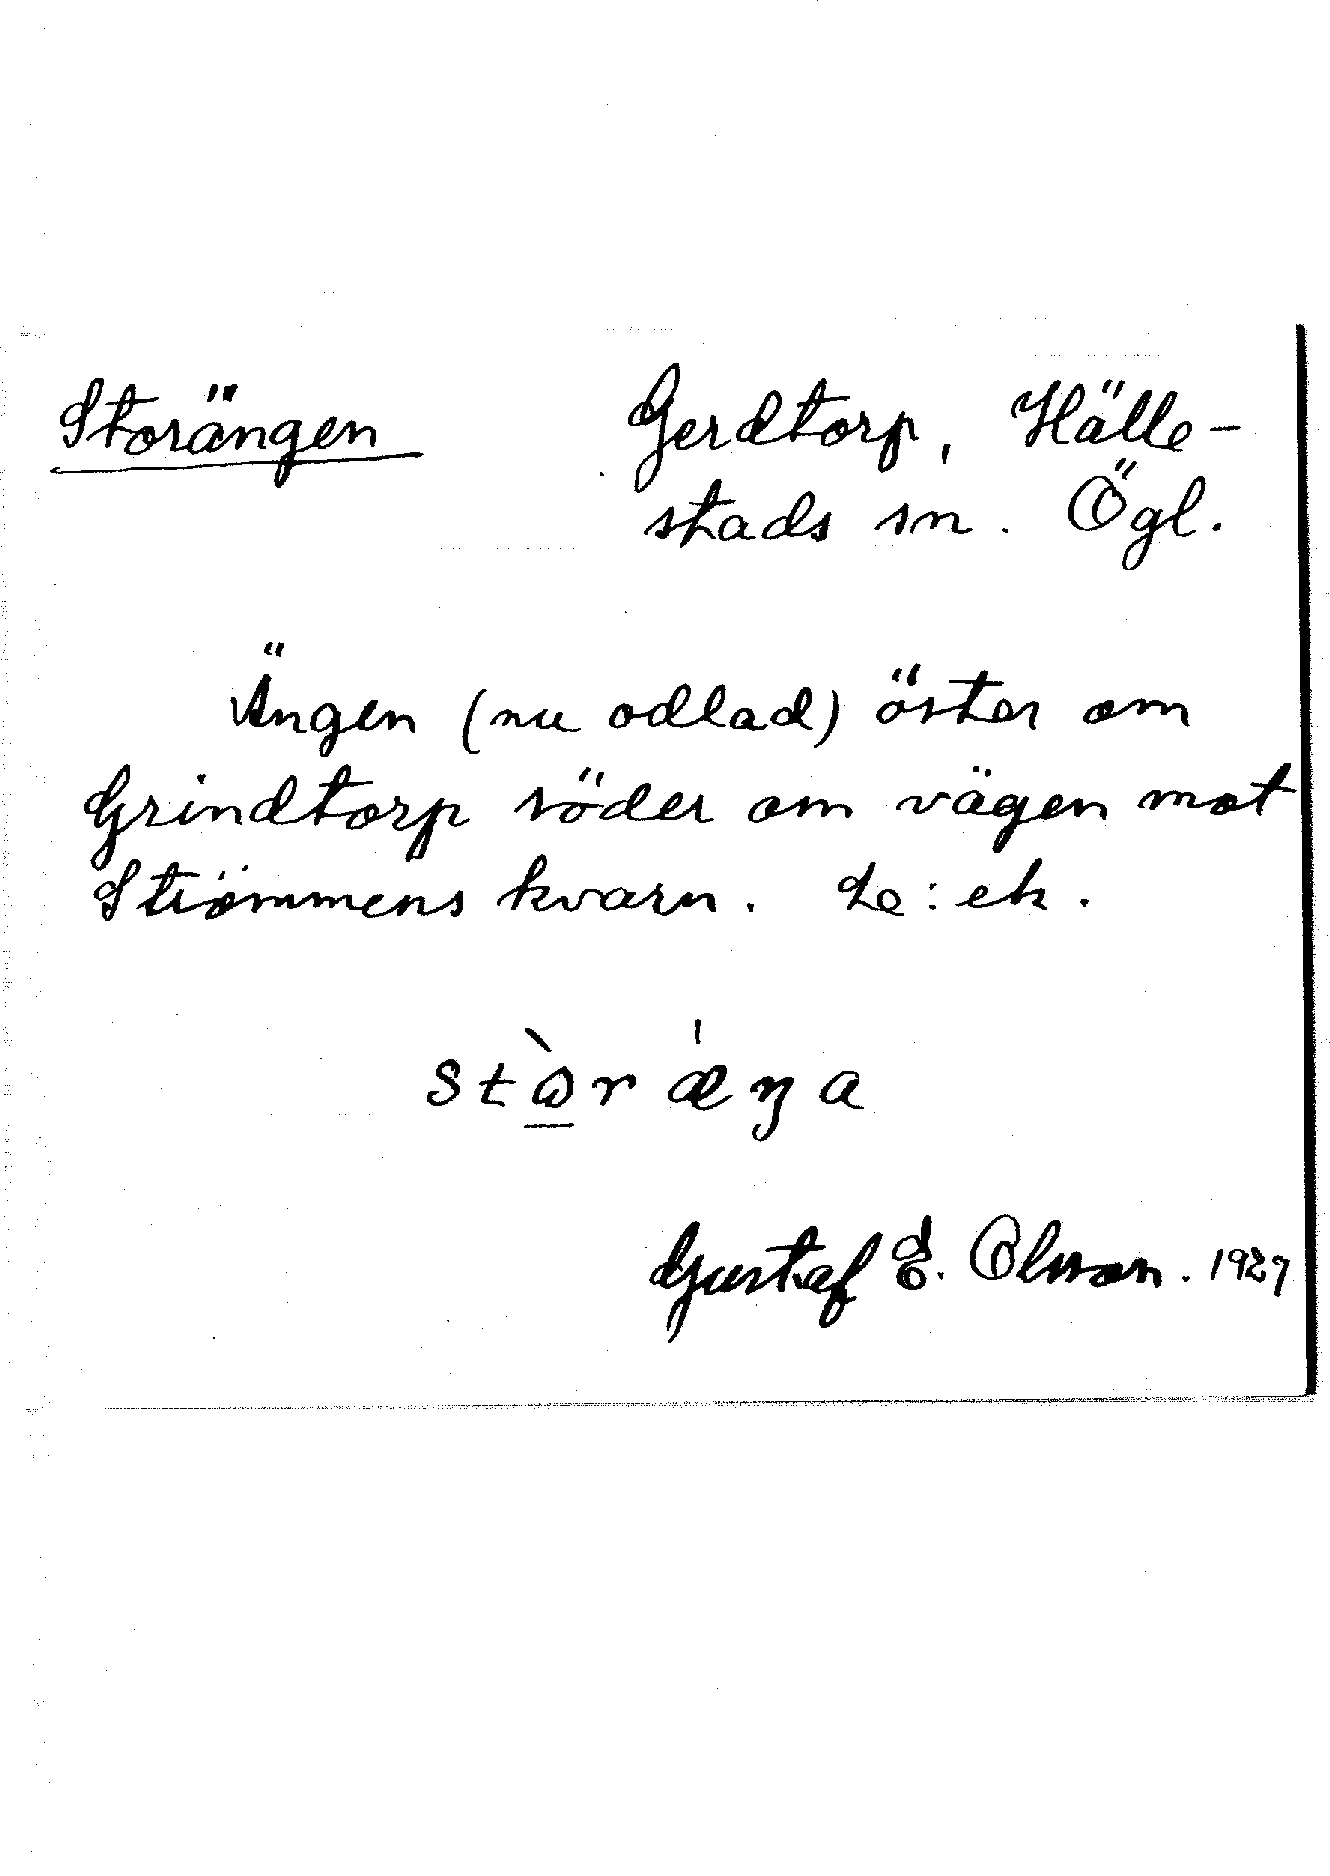 Storängen
Gerdtorp, Hälle-
stads sn. Ögl.
Ängen (nu odlad) öster om
Grindtorp söder om vägen mot
Strömmens kvarn. Le: ek.
Gustaf E. Olsson. 1927